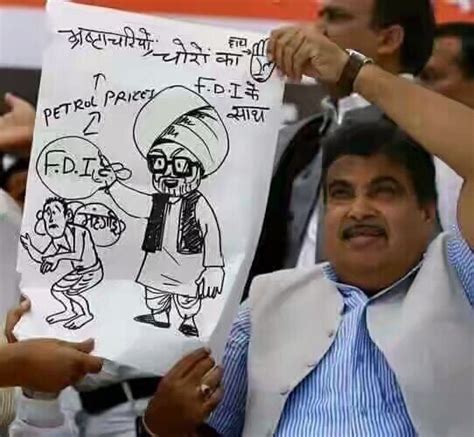 भ्रष्टाचारियों हाथ
चोरों का
F.D.I के
साथ
PETROL PRICES
F.D.I
महंगाई